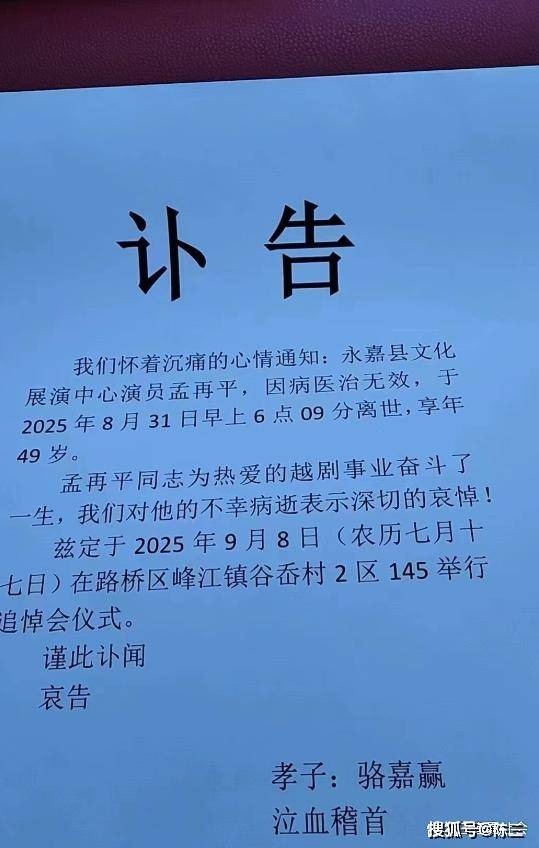 讣告
我们怀着沉痛的心情通知：永嘉县文化
展演中心演员孟再平，因病医治无效，于
2025年8月31日早上6点09分离世，享年
49岁。
孟再平同志为热爱的越剧事业奋斗了
一生，我们对他的不幸病逝表示深切的哀悼！
兹定于2025年9月8日（农历七月十
七日）在路桥区峰江镇谷岙村2区145举行
追悼会仪式。
谨此讣闻
哀告
孝子：骆嘉赢
泣血稽首
搜狐号@陈三